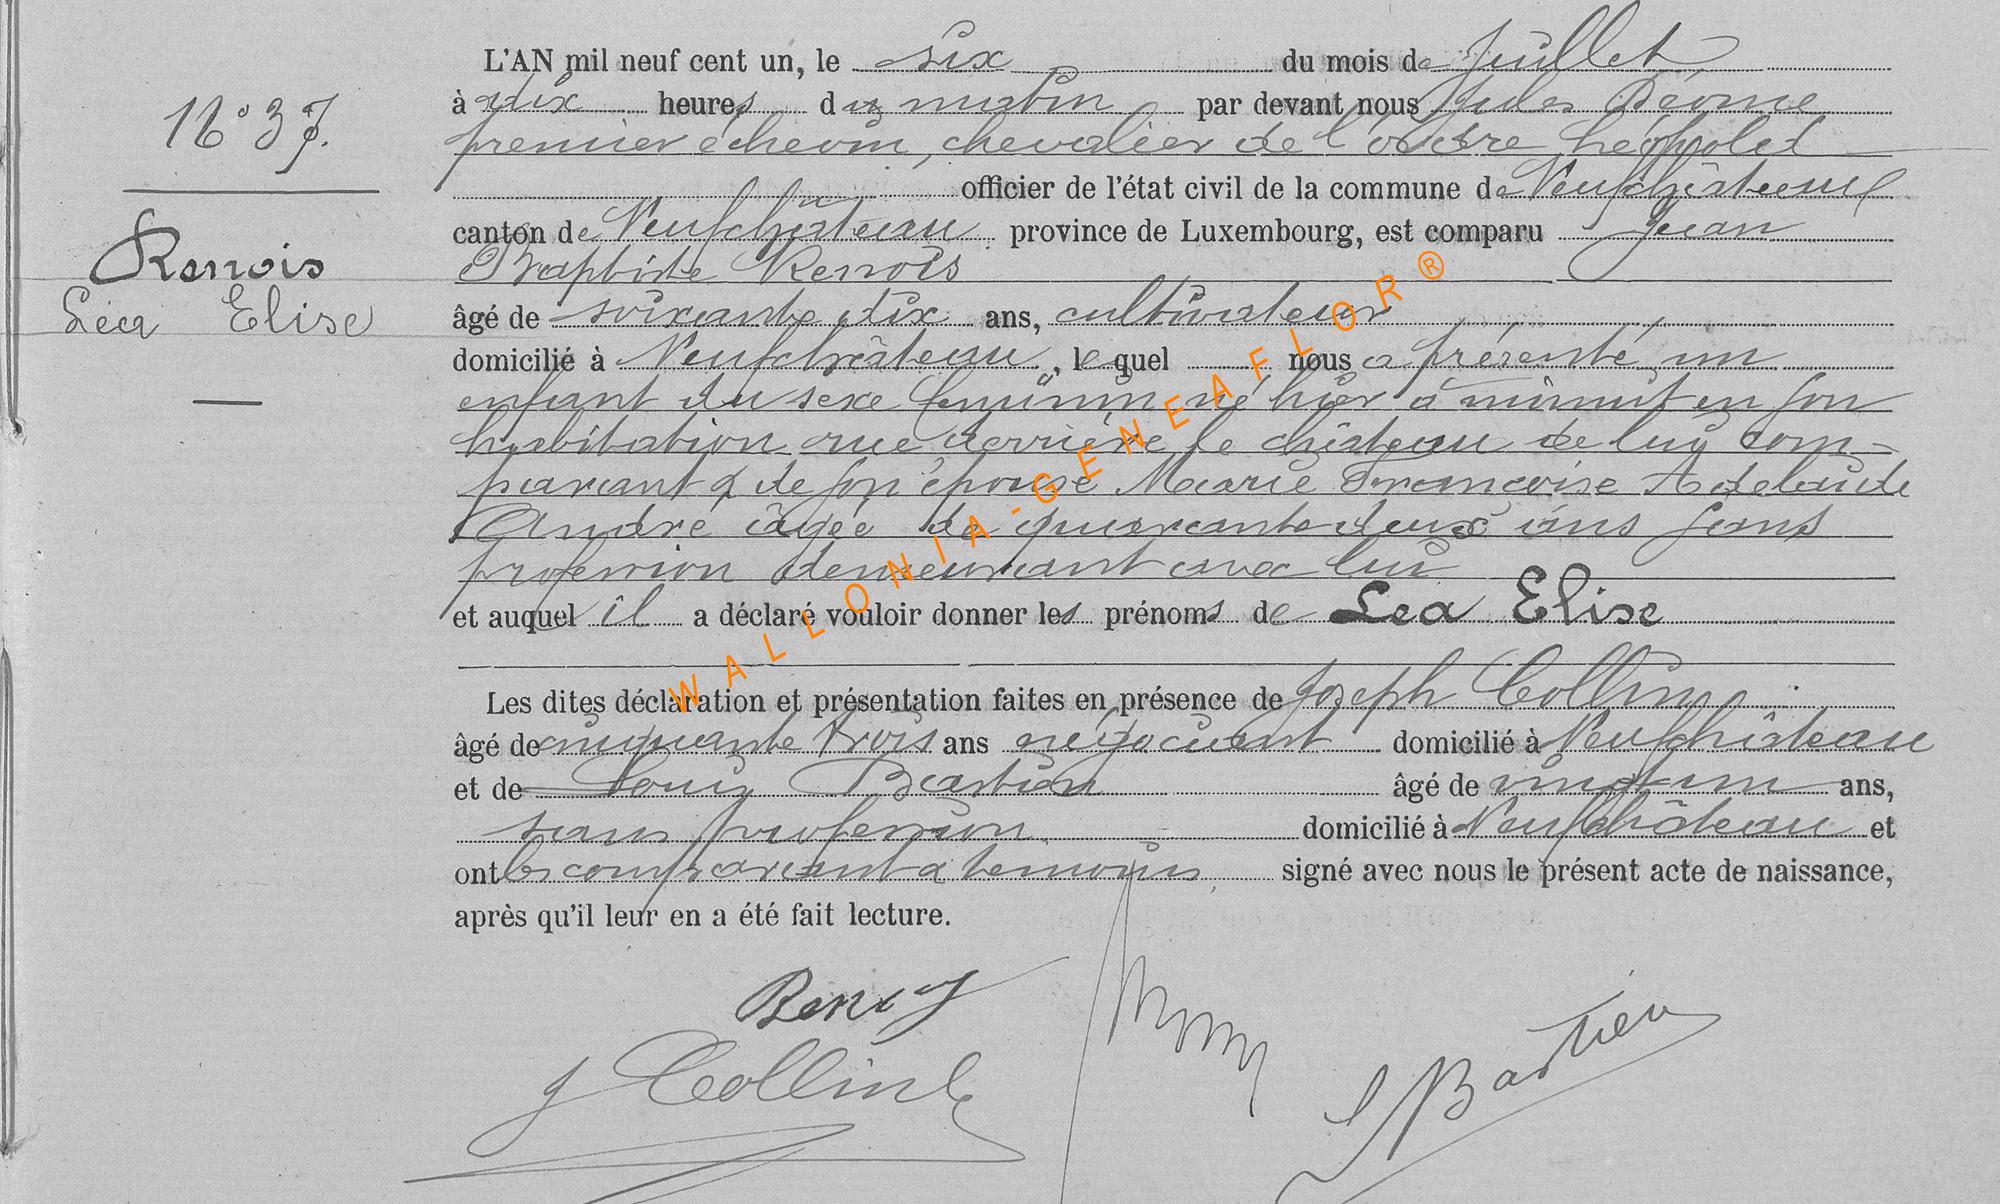 L'AN mil neuf cent un, le six du mois de Juillet
à dix heures du matin par devant nous Jules Déome
N° 37.
premier échevin, chevalier de l'ordre Léopold
officier de l'état civil de la commune de Neufchâteau
canton de Neufchâteau province de Luxembourg, est comparu Jean
Renois
Baptiste Renois
Léa Elise
âgé de soixante dix ans, cultivateur
domicilié à Neufchâteau, lequel nous a présenté un
enfant du sexe féminin né hier à minuit en son
habitation rue derrière le château de luy com-
parant & de son épouse Marie Françoise Adelaïde
André âgée de quarante deux ans sans
profession demeurant avec lui
et auquel il a déclaré vouloir donner les prénoms de Lea Elise
Les dites déclaration et présentation faites en présence de Joseph Collin
âgé de cinquante trois ans négociant domicilié à Neufchâteau
et de Louis Bastien âgé de vingt un ans,
sans profession domicilié à Neufchâteau et
ont les comparant & témoins signé avec nous le présent acte de naissance,
après qu'il leur en a été fait lecture.
J Collin
L Bastien
WALLONIA-GENEAFLOR®